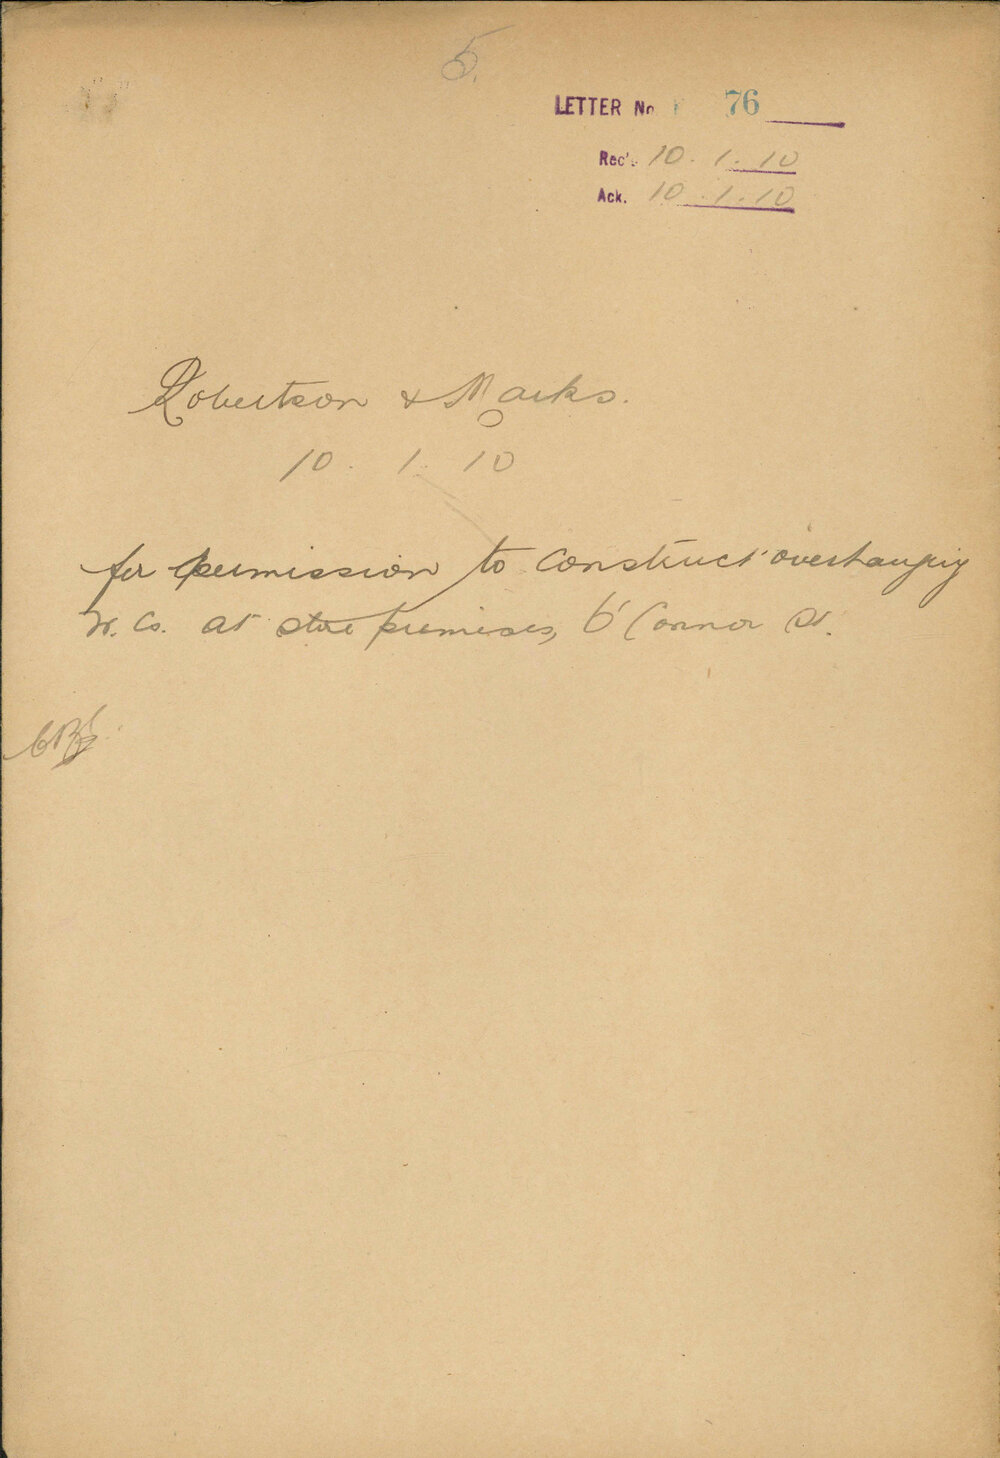 5.
LETTER No 76
Rec'd 10.1.10
Ack. 10.1.10
Robertson & Marks.
10. 1. 10
for permission to construct overhanging
W. Cs. at store premises, O'Connor St.